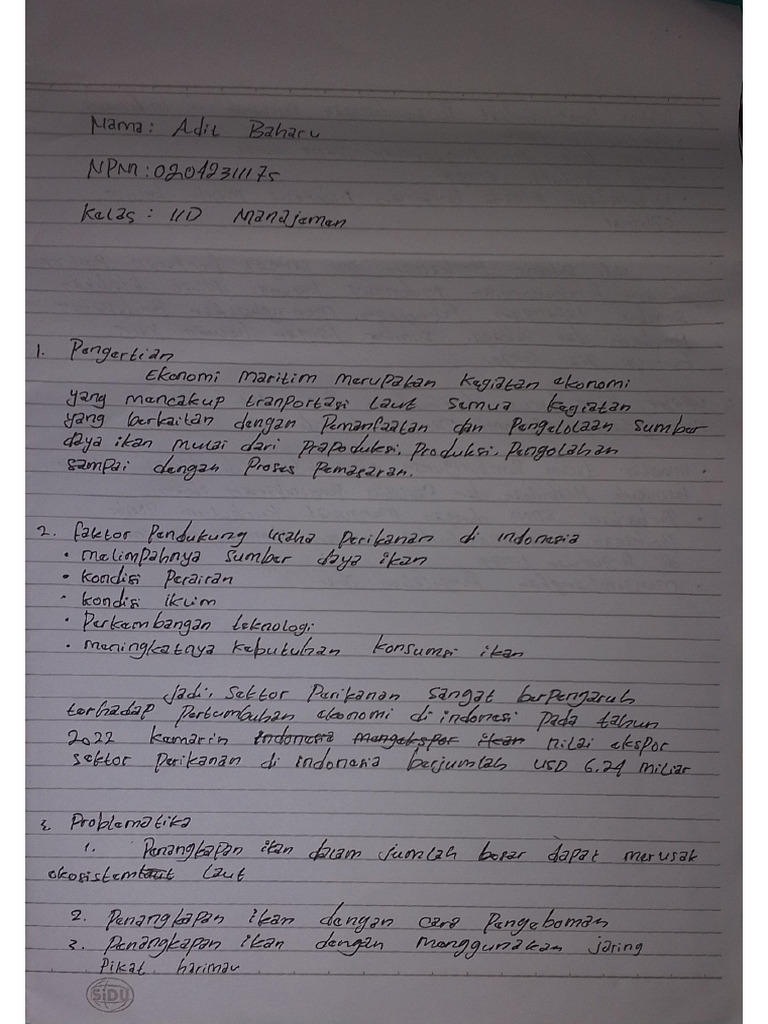 Nama: Adit Baharu
NPM: 02042311175
Kelas: IID Manajemen
1. Pengertian
Ekonomi maritim merupakan kegiatan ekonomi
yang mencakup tranportasi laut semua kegiatan
yang berkaitan dengan Pemanfaatan dan Pengelolaan sumber
daya ikan mulai dari Prapoduksi, Produksi, Pengolahan
sampai dengan Proses Pemasaran.
2. faktor Pendukung usaha Perikanan di indonesia
• melimpahnya sumber daya ikan
• kondisi Perairan
• kondisi iklim
• Perkembangan teknologi
• meningkatnya kebutuhan konsumsi ikan
Jadi, sektor Perikanan sangat berpengaruh
terhadap Pertumbuhan ekonomi di indonesi pada tahun
2022 kemarin indonesia mengekspor ikan nilai ekspor
sektor perikanan di indonesia berjumlah USD 6.24 miliar
3. Problematika
1. Penangkapan ikan dalam jumlah besar dapat merusak
ekosistem laut
2. Penangkapan ikan dengan cara Pengeboman
3. Penangkapan ikan dengan menggunakan jaring
Pikat harimau
SiDU